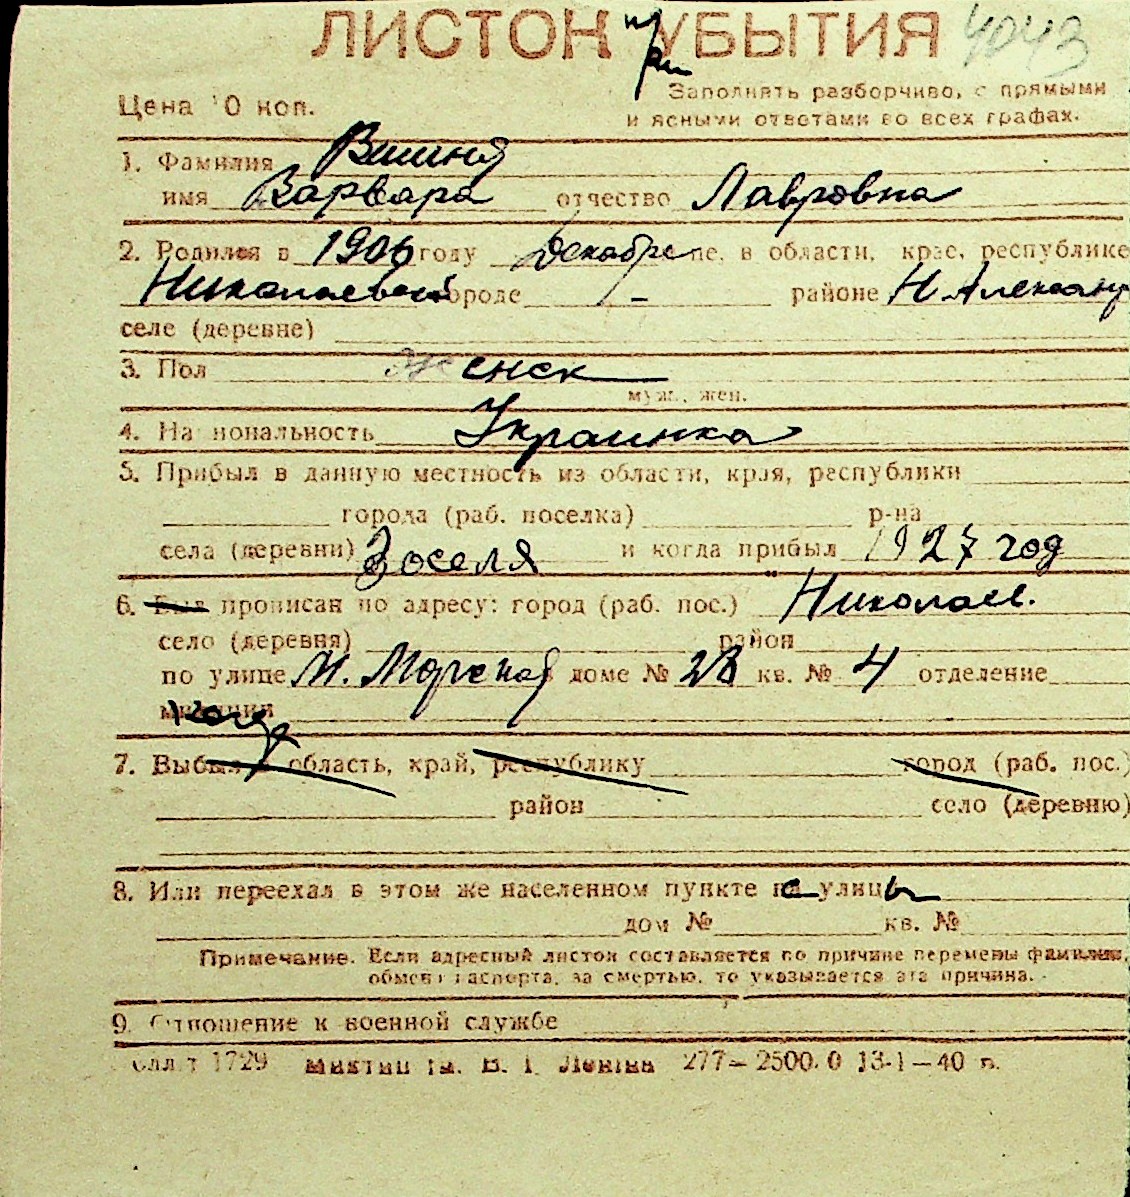 ЛИСТОК при УБЫТИЯ 4043
Цена 10 коп. Заполнять разборчиво, с прямыми
и ясными ответами во всех графах.
1. Фамилия
имя Варвара отчество Лавровна
2. Родился в 1906 году декабре м-це, в области, крае, республике
Николаевской городе / – районе Н. Александр
селе (деревне)
3. Пол женск
муж., жен.
4. Национальность Украинка
5. Прибыл в данную местность из области, края, республики
города (раб. поселка) р-на
села (деревни) Зоселя и когда прибыл 1927 год
6. Был прописан по адресу: город (раб. пос.) Николаев.
село (деревня) район
по улице М. Морская доме № 28 кв. № 4 отделение
милиции
7. Выбыл в область, край, республику город (раб. пос.)
район село (деревню)
8. Или переехал в этом же населенном пункте с улицы
дом № кв. №
Примечание. Если адресный листок составляется по причине перемены фамилии,
обмена паспорта, за смертью, то указывается эта причина.
9. Отношение к военной службе
1729 им. В. И. Ленина 277–2500.0 13-1–40 г.